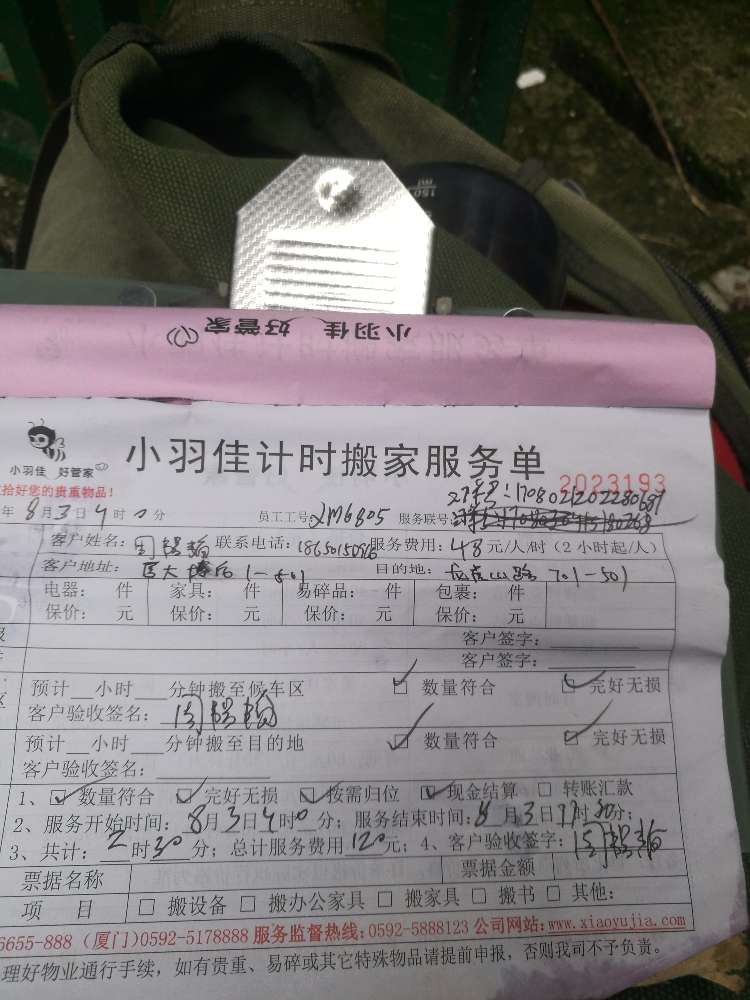 150
ml
小羽佳 好管家
小羽佳 好管家
小羽佳计时搬家服务单
2023193
拾好您的贵重物品!
年8月3日4时0分 员工工号:XM6805 服务联号:
订单号:1708021202280687
客户姓名:周锡翰 联系电话: 服务费用:48元/人/时(2小时起/人)
客户地址: 1-501 目的地: 701-501
电器: 件 家具: 件 易碎品: 件 包裹: 件
保价: 元 保价: 元 保价: 元 保价: 元
客户签字:
客户签字:
区 预计__小时___分钟搬至候车区 ☑ 数量符合 ☑ 完好无损
客户验收签名:周锡翰
预计__小时___分钟搬至目的地 ☑ 数量符合 ☑ 完好无损
客户验收签名:
1、☑ 数量符合 ☑ 完好无损 ☑ 按需归位 ☑ 现金结算 □ 转账汇款
2、服务开始时间:8月3日4时0分;服务结束时间:8月3日 时30分;
3、共计:2时30分;总计服务费用120元;4、客户验收签字:周锡翰
票据名称 票据金额
项 目 □ 搬设备 □ 搬办公家具 □ 搬家具 □ 搬书 □ 其他:
6655-888 (厦门)0592-5178888 服务监督热线:0592-5888123 公司网站:www.xiaoyujia.com
理好物业通行手续,如有贵重、易碎或其它特殊物品请提前申报,否则我司不予负责。